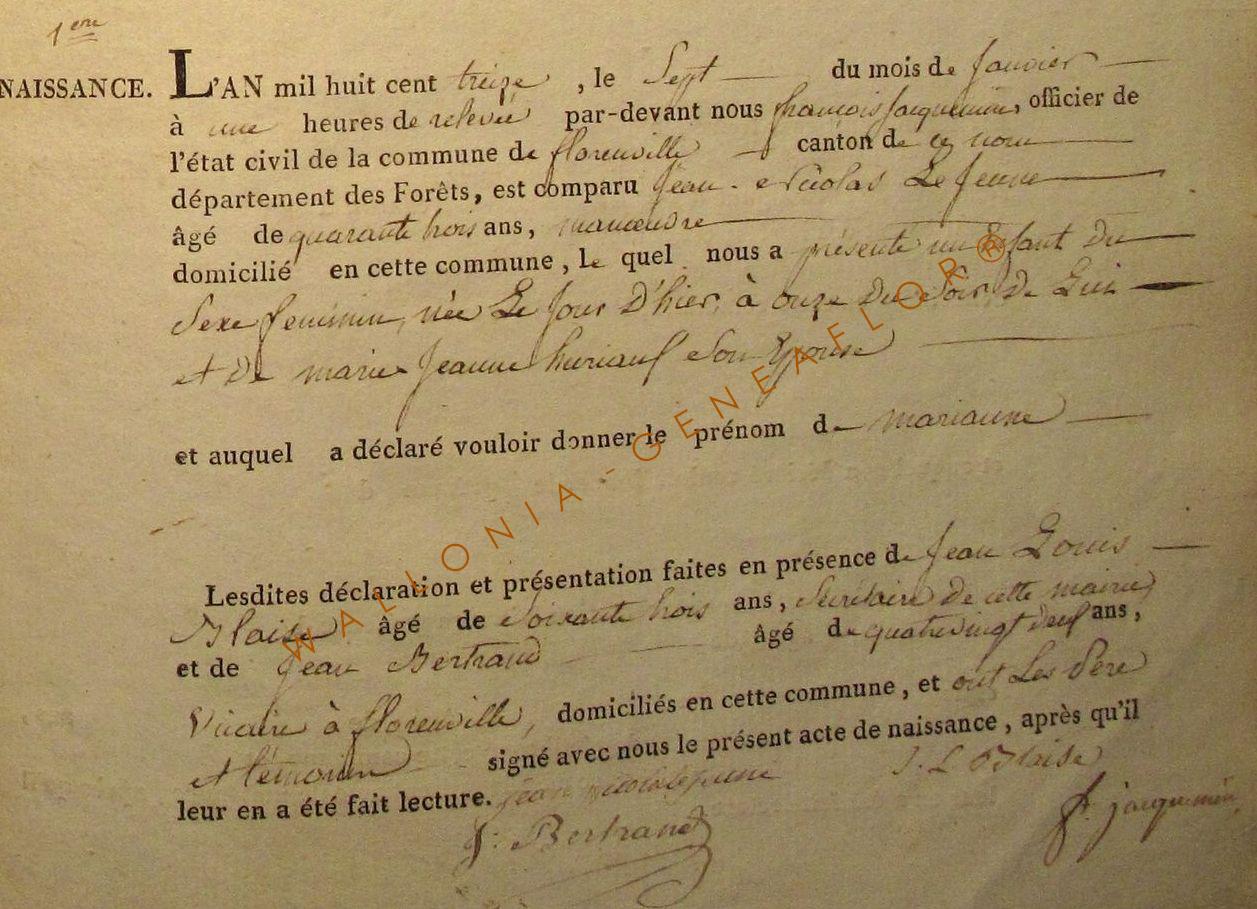 1ere
NAISSANCE. L'AN mil huit cent treize, le Sept du mois de Janvier
à une heures de relevée par-devant nous françois Jacquemin, officier de
l'état civil de la commune de florenville canton de ce nom
département des Forêts, est comparu Jean Nicolas Le Jeune
âgé de quarante trois ans, manoeuvre
domicilié en cette commune, le quel nous a présenté un Enfant du
Sexe féminin, née Le Jour D'hier, à onze du Soir, de Lui
et De marie Jeanne Son Epouse
et auquel a déclaré vouloir donner le prénom de marianne
WALLONIA-GENEAFLOR®
Lesdites déclaration et présentation faites en présence de Jean Louis
Blaise âgé de Soixante trois ans, Secrétaire de cette mairie,
et de Jean Bertrand âgé de quatrevingt deux ans,
Vicaire à florenville, domiciliés en cette commune, et ont Les Père
et témoin signé avec nous le présent acte de naissance, après qu'il
leur en a été fait lecture. jean nicolas lejeune J. L Blaise
J: Bertrand f. jacquemin,